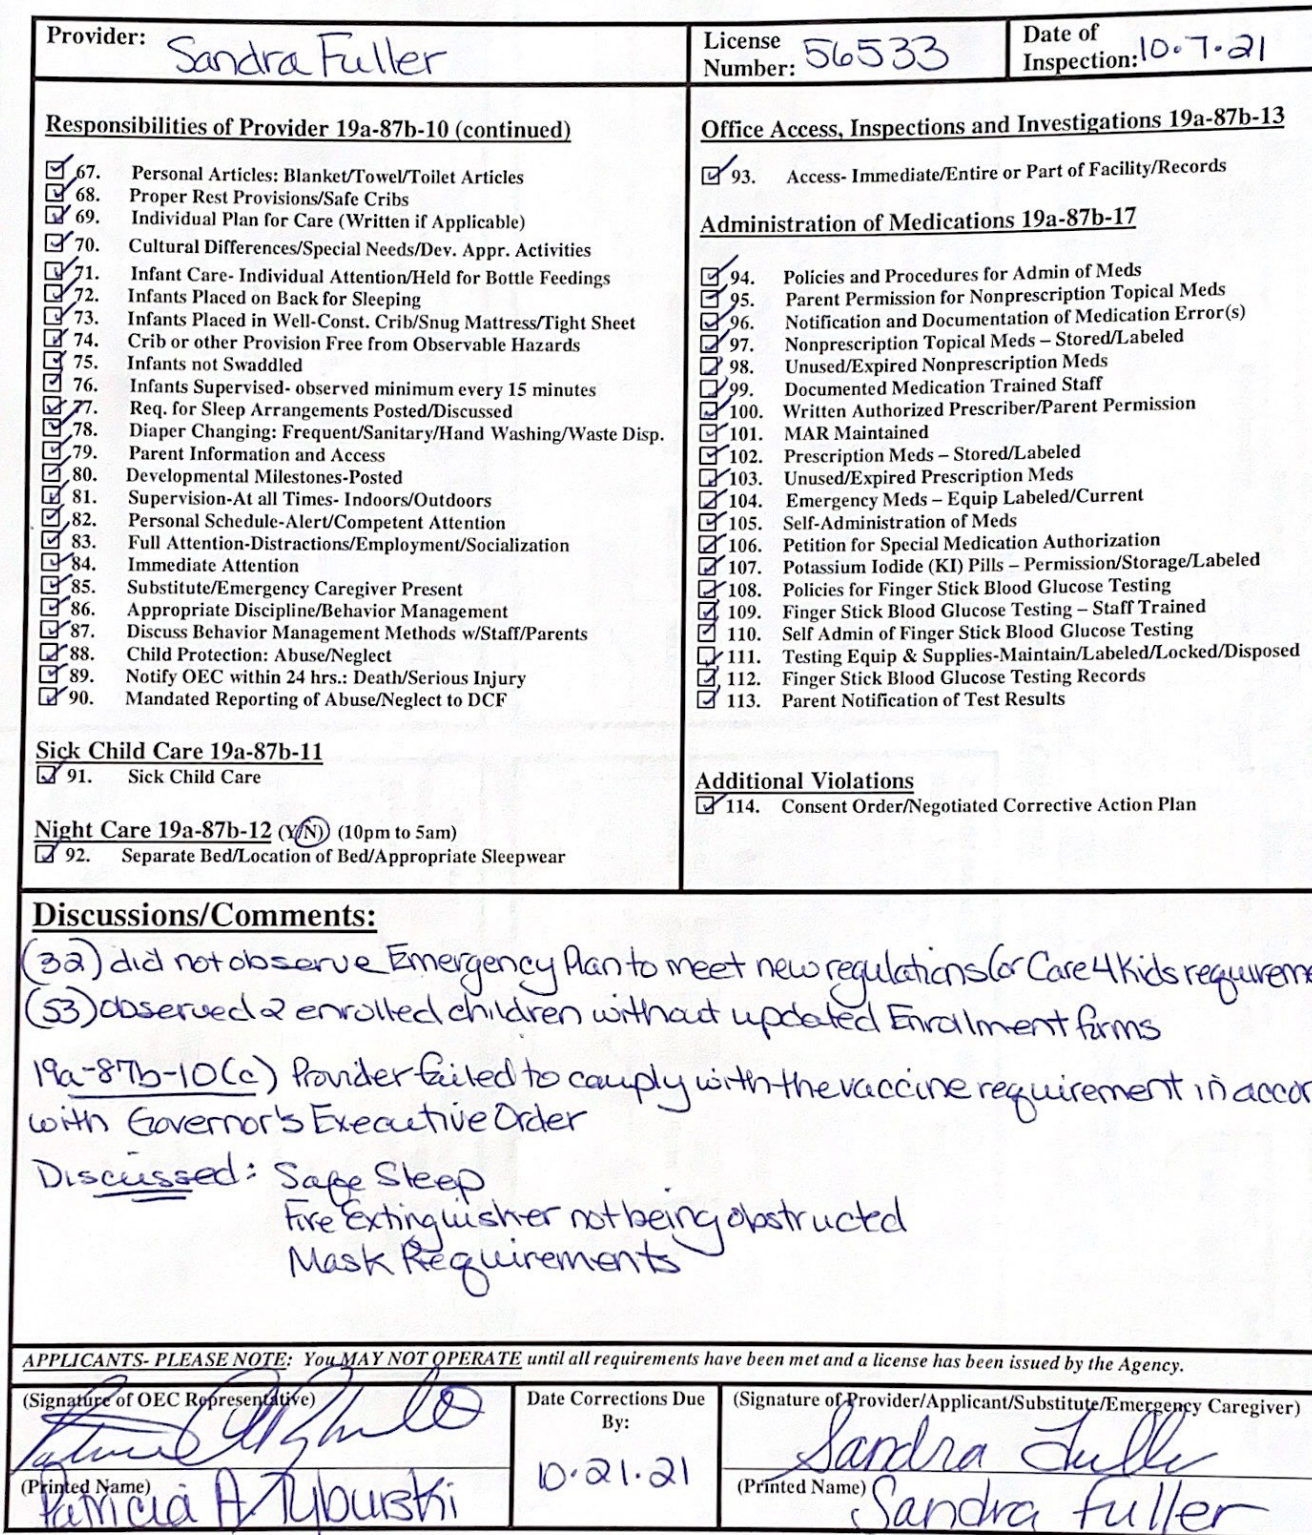 Provider: Sandra Fuller
License Number: 56533
Date of Inspection: 10.7.21
Responsibilities of Provider 19a-87b-10 (continued)
67. Personal Articles: Blanket/Towel/Toilet Articles
68. Proper Rest Provisions/Safe Cribs
69. Individual Plan for Care (Written if Applicable)
70. Cultural Differences/Special Needs/Dev. Appr. Activities
71. Infant Care- Individual Attention/Held for Bottle Feedings
72. Infants Placed on Back for Sleeping
73. Infants Placed in Well-Const. Crib/Snug Mattress/Tight Sheet
74. Crib or other Provision Free from Observable Hazards
75. Infants not Swaddled
76. Infants Supervised- observed minimum every 15 minutes
77. Req. for Sleep Arrangements Posted/Discussed
78. Diaper Changing: Frequent/Sanitary/Hand Washing/Waste Disp.
79. Parent Information and Access
80. Developmental Milestones-Posted
81. Supervision-At all Times- Indoors/Outdoors
82. Personal Schedule-Alert/Competent Attention
83. Full Attention-Distractions/Employment/Socialization
84. Immediate Attention
85. Substitute/Emergency Caregiver Present
86. Appropriate Discipline/Behavior Management
87. Discuss Behavior Management Methods w/Staff/Parents
88. Child Protection: Abuse/Neglect
89. Notify OEC within 24 hrs.: Death/Serious Injury
90. Mandated Reporting of Abuse/Neglect to DCF
Sick Child Care 19a-87b-11
91. Sick Child Care
Night Care 19a-87b-12 (Y/N) (10pm to 5am)
92. Separate Bed/Location of Bed/Appropriate Sleepwear
Office Access, Inspections and Investigations 19a-87b-13
93. Access- Immediate/Entire or Part of Facility/Records
Administration of Medications 19a-87b-17
94. Policies and Procedures for Admin of Meds
95. Parent Permission for Nonprescription Topical Meds
96. Notification and Documentation of Medication Error(s)
97. Nonprescription Topical Meds – Stored/Labeled
98. Unused/Expired Nonprescription Meds
99. Documented Medication Trained Staff
100. Written Authorized Prescriber/Parent Permission
101. MAR Maintained
102. Prescription Meds – Stored/Labeled
103. Unused/Expired Prescription Meds
104. Emergency Meds – Equip Labeled/Current
105. Self-Administration of Meds
106. Petition for Special Medication Authorization
107. Potassium Iodide (KI) Pills – Permission/Storage/Labeled
108. Policies for Finger Stick Blood Glucose Testing
109. Finger Stick Blood Glucose Testing – Staff Trained
110. Self Admin of Finger Stick Blood Glucose Testing
111. Testing Equip & Supplies-Maintain/Labeled/Locked/Disposed
112. Finger Stick Blood Glucose Testing Records
113. Parent Notification of Test Results
Additional Violations
114. Consent Order/Negotiated Corrective Action Plan
Discussions/Comments:
(32) did not observe Emergency Plan to meet new regulations (or Care 4 Kids requireme
(53) observed 2 enrolled children without updated Enrollment forms
19a-87b-10(c) Provider failed to comply with the vaccine requirement in accor
with Governor's Executive Order
Discussed: Safe Sleep
Fire Extinguisher not being obstructed
Mask Requirements
APPLICANTS- PLEASE NOTE: You MAY NOT OPERATE until all requirements have been met and a license has been issued by the Agency.
(Signature of OEC Representative)
(Printed Name) Patricia A. Tyburski
Date Corrections Due By:
10.21.21
(Signature of Provider/Applicant/Substitute/Emergency Caregiver)
Sandra Fuller
(Printed Name) Sandra Fuller